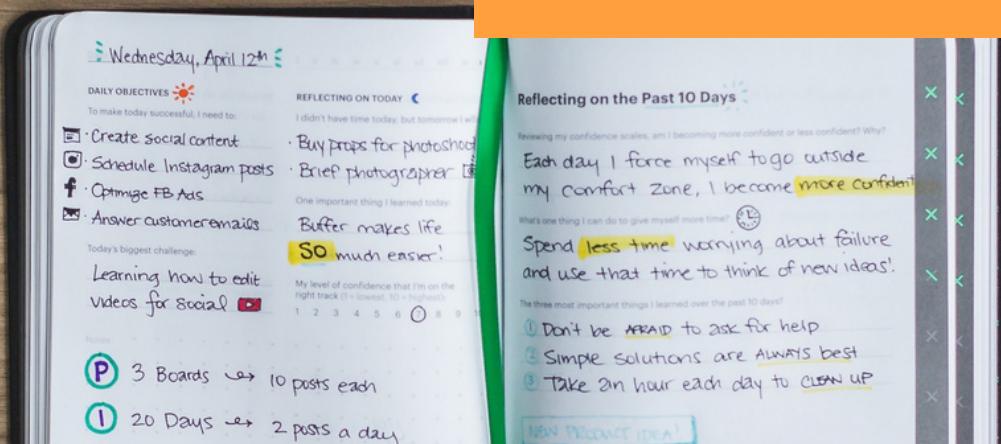 Wednesday, April 12th
DAILY OBJECTIVES
To make today successful, I need to:
· Create social content
· Schedule Instagram posts
· Optimize FB Ads
· Answer customer emails
Today's biggest challenge:
Learning how to edit
videos for social
Notes
P 3 Boards → 10 posts each
I 20 Days → 2 posts a day
REFLECTING ON TODAY
I didn't have time today, but tomorrow I will
· Buy props for photoshoot
· Brief photographer
One important thing I learned today:
Buffer makes life
SO much easier!
My level of confidence that I'm on the
right track (1 = lowest, 10 = highest):
1 2 3 4 5 6 7 8 9
Reflecting on the Past 10 Days
Reviewing my confidence scales, am I becoming more confident or less confident? Why?
Each day I force myself to go outside
my comfort zone, I become more confident
What's one thing I can do to give myself more time?
Spend less time worrying about failure
and use that time to think of new ideas!
The three most important things I learned over the past 10 days?
1 Don't be AFRAID to ask for help
2 Simple solutions are ALWAYS best
3 Take an hour each day to CLEAN UP
NEW PRODUCT IDEA!